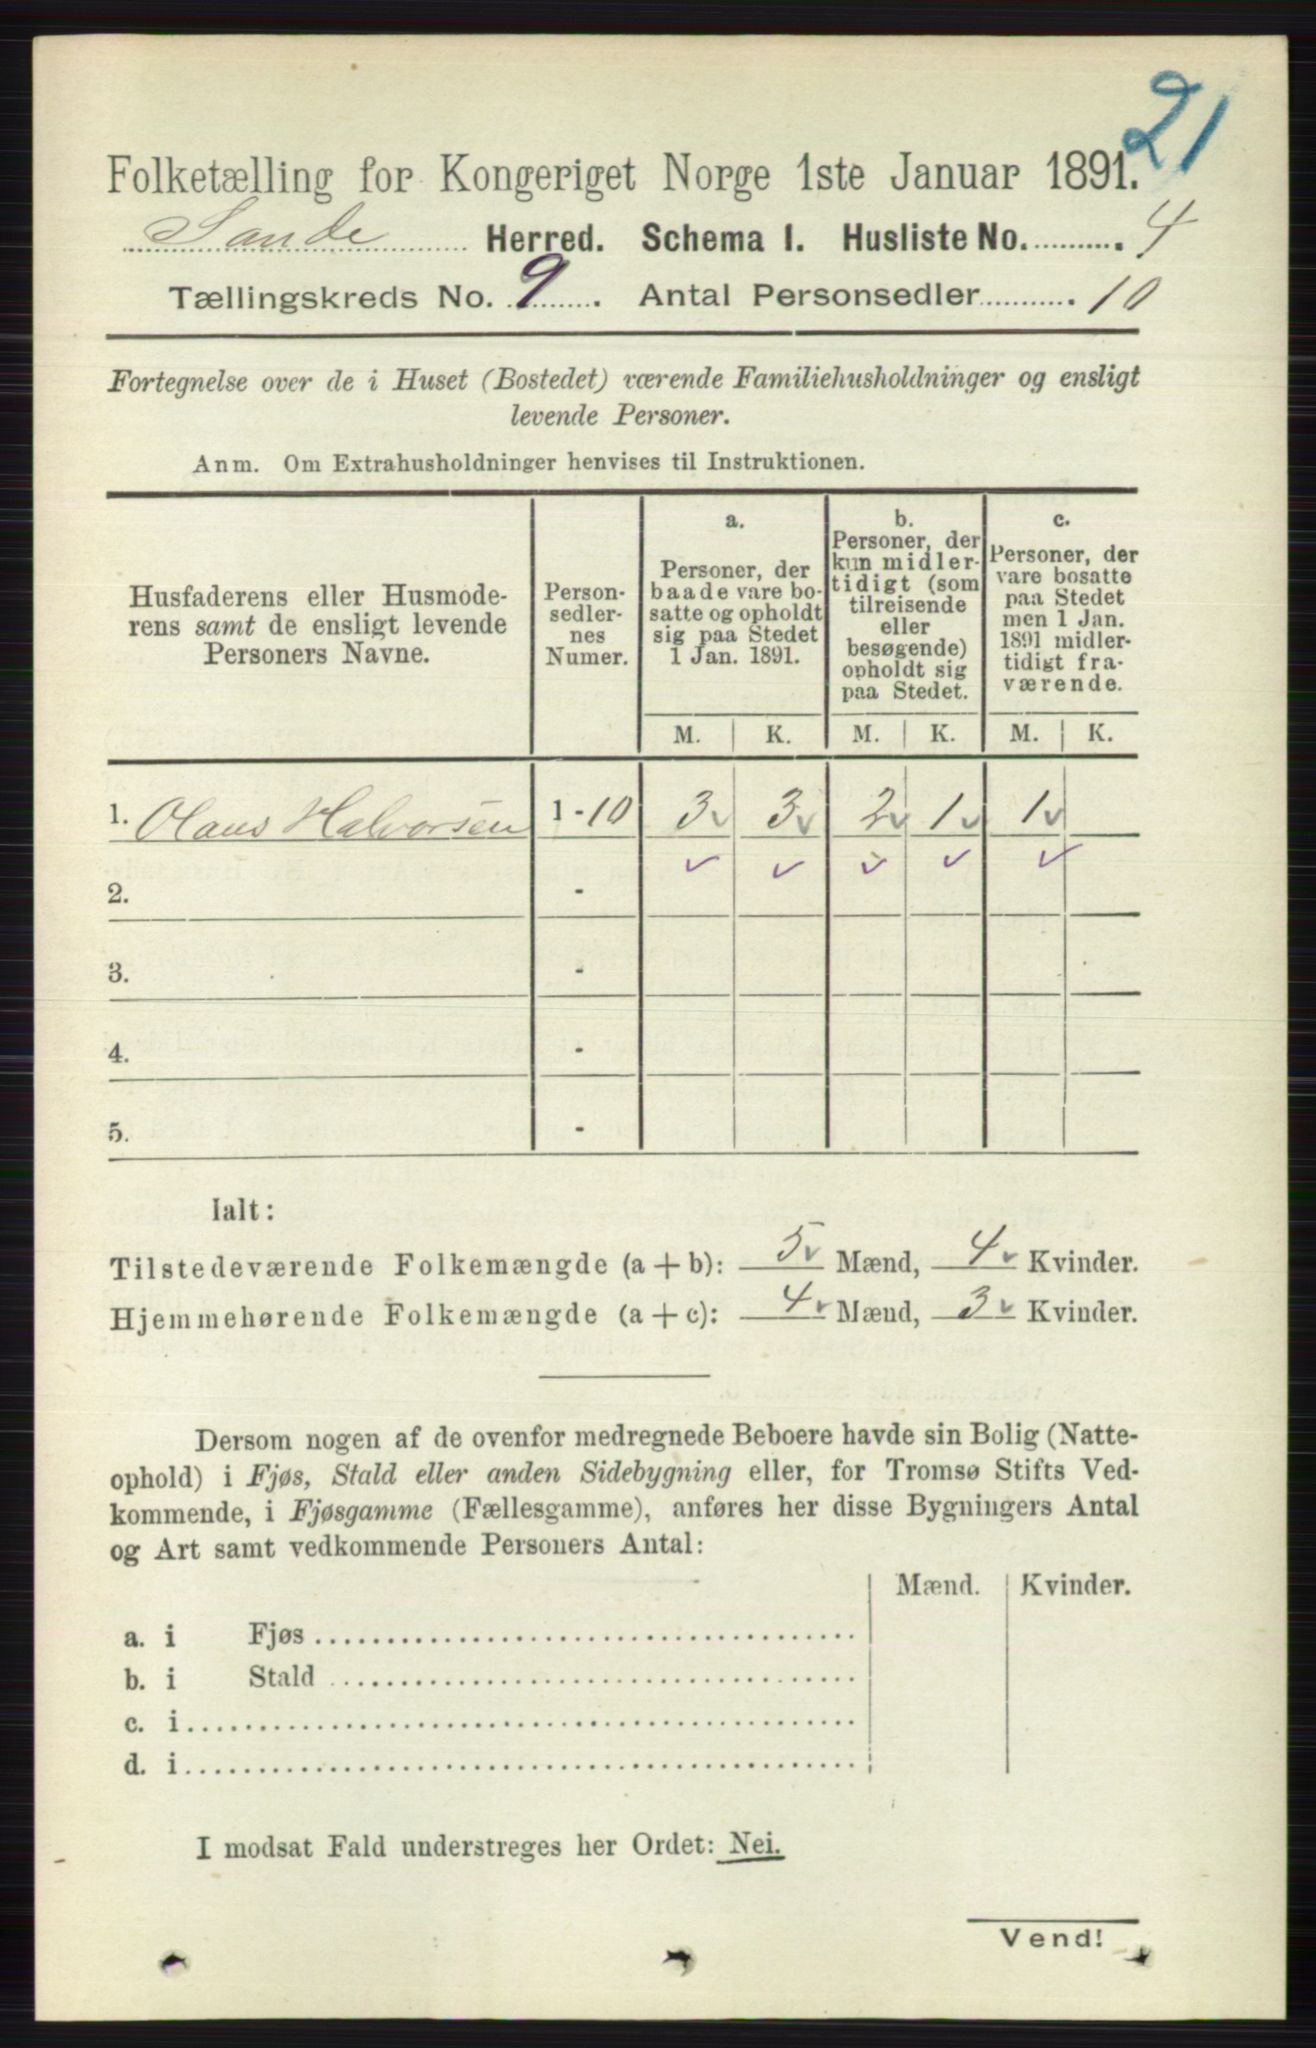 21
Folketælling for Kongeriget Norge 1ste Januar 1891.
Sande Herred. Schema I. Husliste No. 4
Tællingskreds No. 9. Antal Personsedler 10
Fortegnelse over de i Huset (Bostedet) værende Familiehusholdninger og ensligt
levende Personer.
Anm. Om Extrahusholdninger henvises til Instruktionen.
Husfaderens eller Husmode-
rens samt de ensligt levende
Personers Navne.
Person-
sedler-
nes
Numer.
a.
Personer, der
baade vare bo-
satte og opholdt
sig paa Stedet
1 Jan. 1891.
b.
Personer, der
kun midler-
tidigt (som
tilreisende
eller
besøgende)
opholdt sig
paa Stedet.
c.
Personer, der
vare bosatte
paa Stedet
men 1 Jan.
1891 midler-
tidigt fra-
værende.
M. K. M. K. M. K.
1. Olaus Halvorsen 1-10 3 3 2 1 1
2. -
3. -
4. -
5. -
Ialt:
Tilstedeværende Folkemængde (a + b): 5 Mænd, 4 Kvinder.
Hjemmehørende Folkemængde (a + c): 4 Mænd, 3 Kvinder.
Dersom nogen af de ovenfor medregnede Beboere havde sin Bolig (Natte-
ophold) i Fjøs, Stald eller anden Sidebygning eller, for Tromsø Stifts Ved-
kommende, i Fjøsgamme (Fællesgamme), anføres her disse Bygningers Antal
og Art samt vedkommende Personers Antal:
Mænd. Kvinder.
a. i Fjøs
b. i Stald
c. i
d. i
I modsat Fald understreges her Ordet: Nei.
Vend!